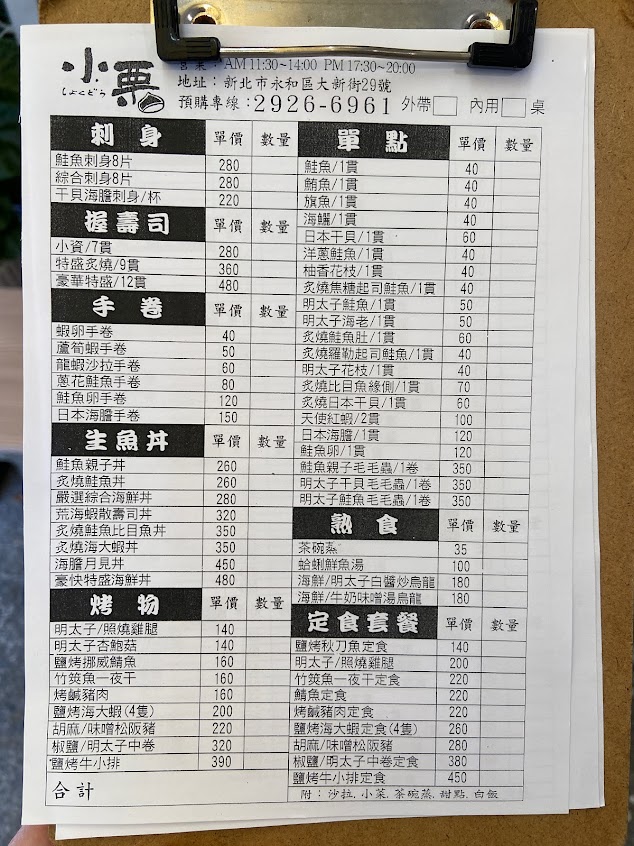 小栗
しょくどう
營業：AM 11:30~14:00 PM 17:30~20:00
地址：新北市永和區大新街29號
預購專線：2926-6961 外帶 內用 桌
刺身 單價 數量
鮭魚刺身8片 280
綜合刺身8片 280
干貝海膽刺身/杯 220
握壽司 單價 數量
小資/7貫 280
特盛炙燒/9貫 360
豪華特盛/12貫 480
手卷 單價 數量
蝦卵手卷 40
蘆筍蝦手卷 50
龍蝦沙拉手卷 60
蔥花鮭魚手卷 80
鮭魚卵手卷 120
日本海膽手卷 150
生魚丼 單價 數量
鮭魚親子丼 260
炙燒鮭魚丼 260
嚴選綜合海鮮丼 280
荒海蝦散壽司丼 320
炙燒鮭魚比目魚丼 350
炙燒海大蝦丼 350
海膽月見丼 450
豪快特盛海鮮丼 480
烤物 單價 數量
明太子/照燒雞腿 140
明太子杏鮑菇 140
鹽烤挪威鯖魚 160
竹筴魚一夜干 160
烤鹹豬肉 160
鹽烤海大蝦(4隻) 200
胡麻/味噌松阪豬 220
椒鹽/明太子中卷 320
鹽烤牛小排 390
合計
單點 單價 數量
鮭魚/1貫 40
鮪魚/1貫 40
旗魚/1貫 40
海鱺/1貫 40
日本干貝/1貫 60
洋蔥鮭魚/1貫 40
柚香花枝/1貫 40
炙燒焦糖起司鮭魚/1貫 40
明太子鮭魚/1貫 50
明太子海老/1貫 50
炙燒鮭魚肚/1貫 60
炙燒羅勒起司鮭魚/1貫 40
明太子花枝/1貫 40
炙燒比目魚緣側/1貫 70
炙燒日本干貝/1貫 60
天使紅蝦/2貫 100
日本海膽/1貫 120
鮭魚卵/1貫 120
鮭魚親子毛毛蟲/1卷 350
明太子干貝毛毛蟲/1卷 350
明太子鮭魚毛毛蟲/1卷 350
熟食 單價 數量
茶碗蒸 35
蛤蜊鮮魚湯 100
海鮮/明太子白醬炒烏龍 180
海鮮/牛奶味噌湯烏龍 180
定食套餐 單價 數量
鹽烤秋刀魚定食 140
明太子/照燒雞腿 200
竹筴魚一夜干定食 220
鯖魚定食 220
烤鹹豬肉定食 220
鹽烤海大蝦定食(4隻) 260
胡麻/味噌松阪豬 280
椒鹽/明太子中卷定食 380
鹽烤牛小排定食 450
附：沙拉.小菜.茶碗蒸.甜點.白飯